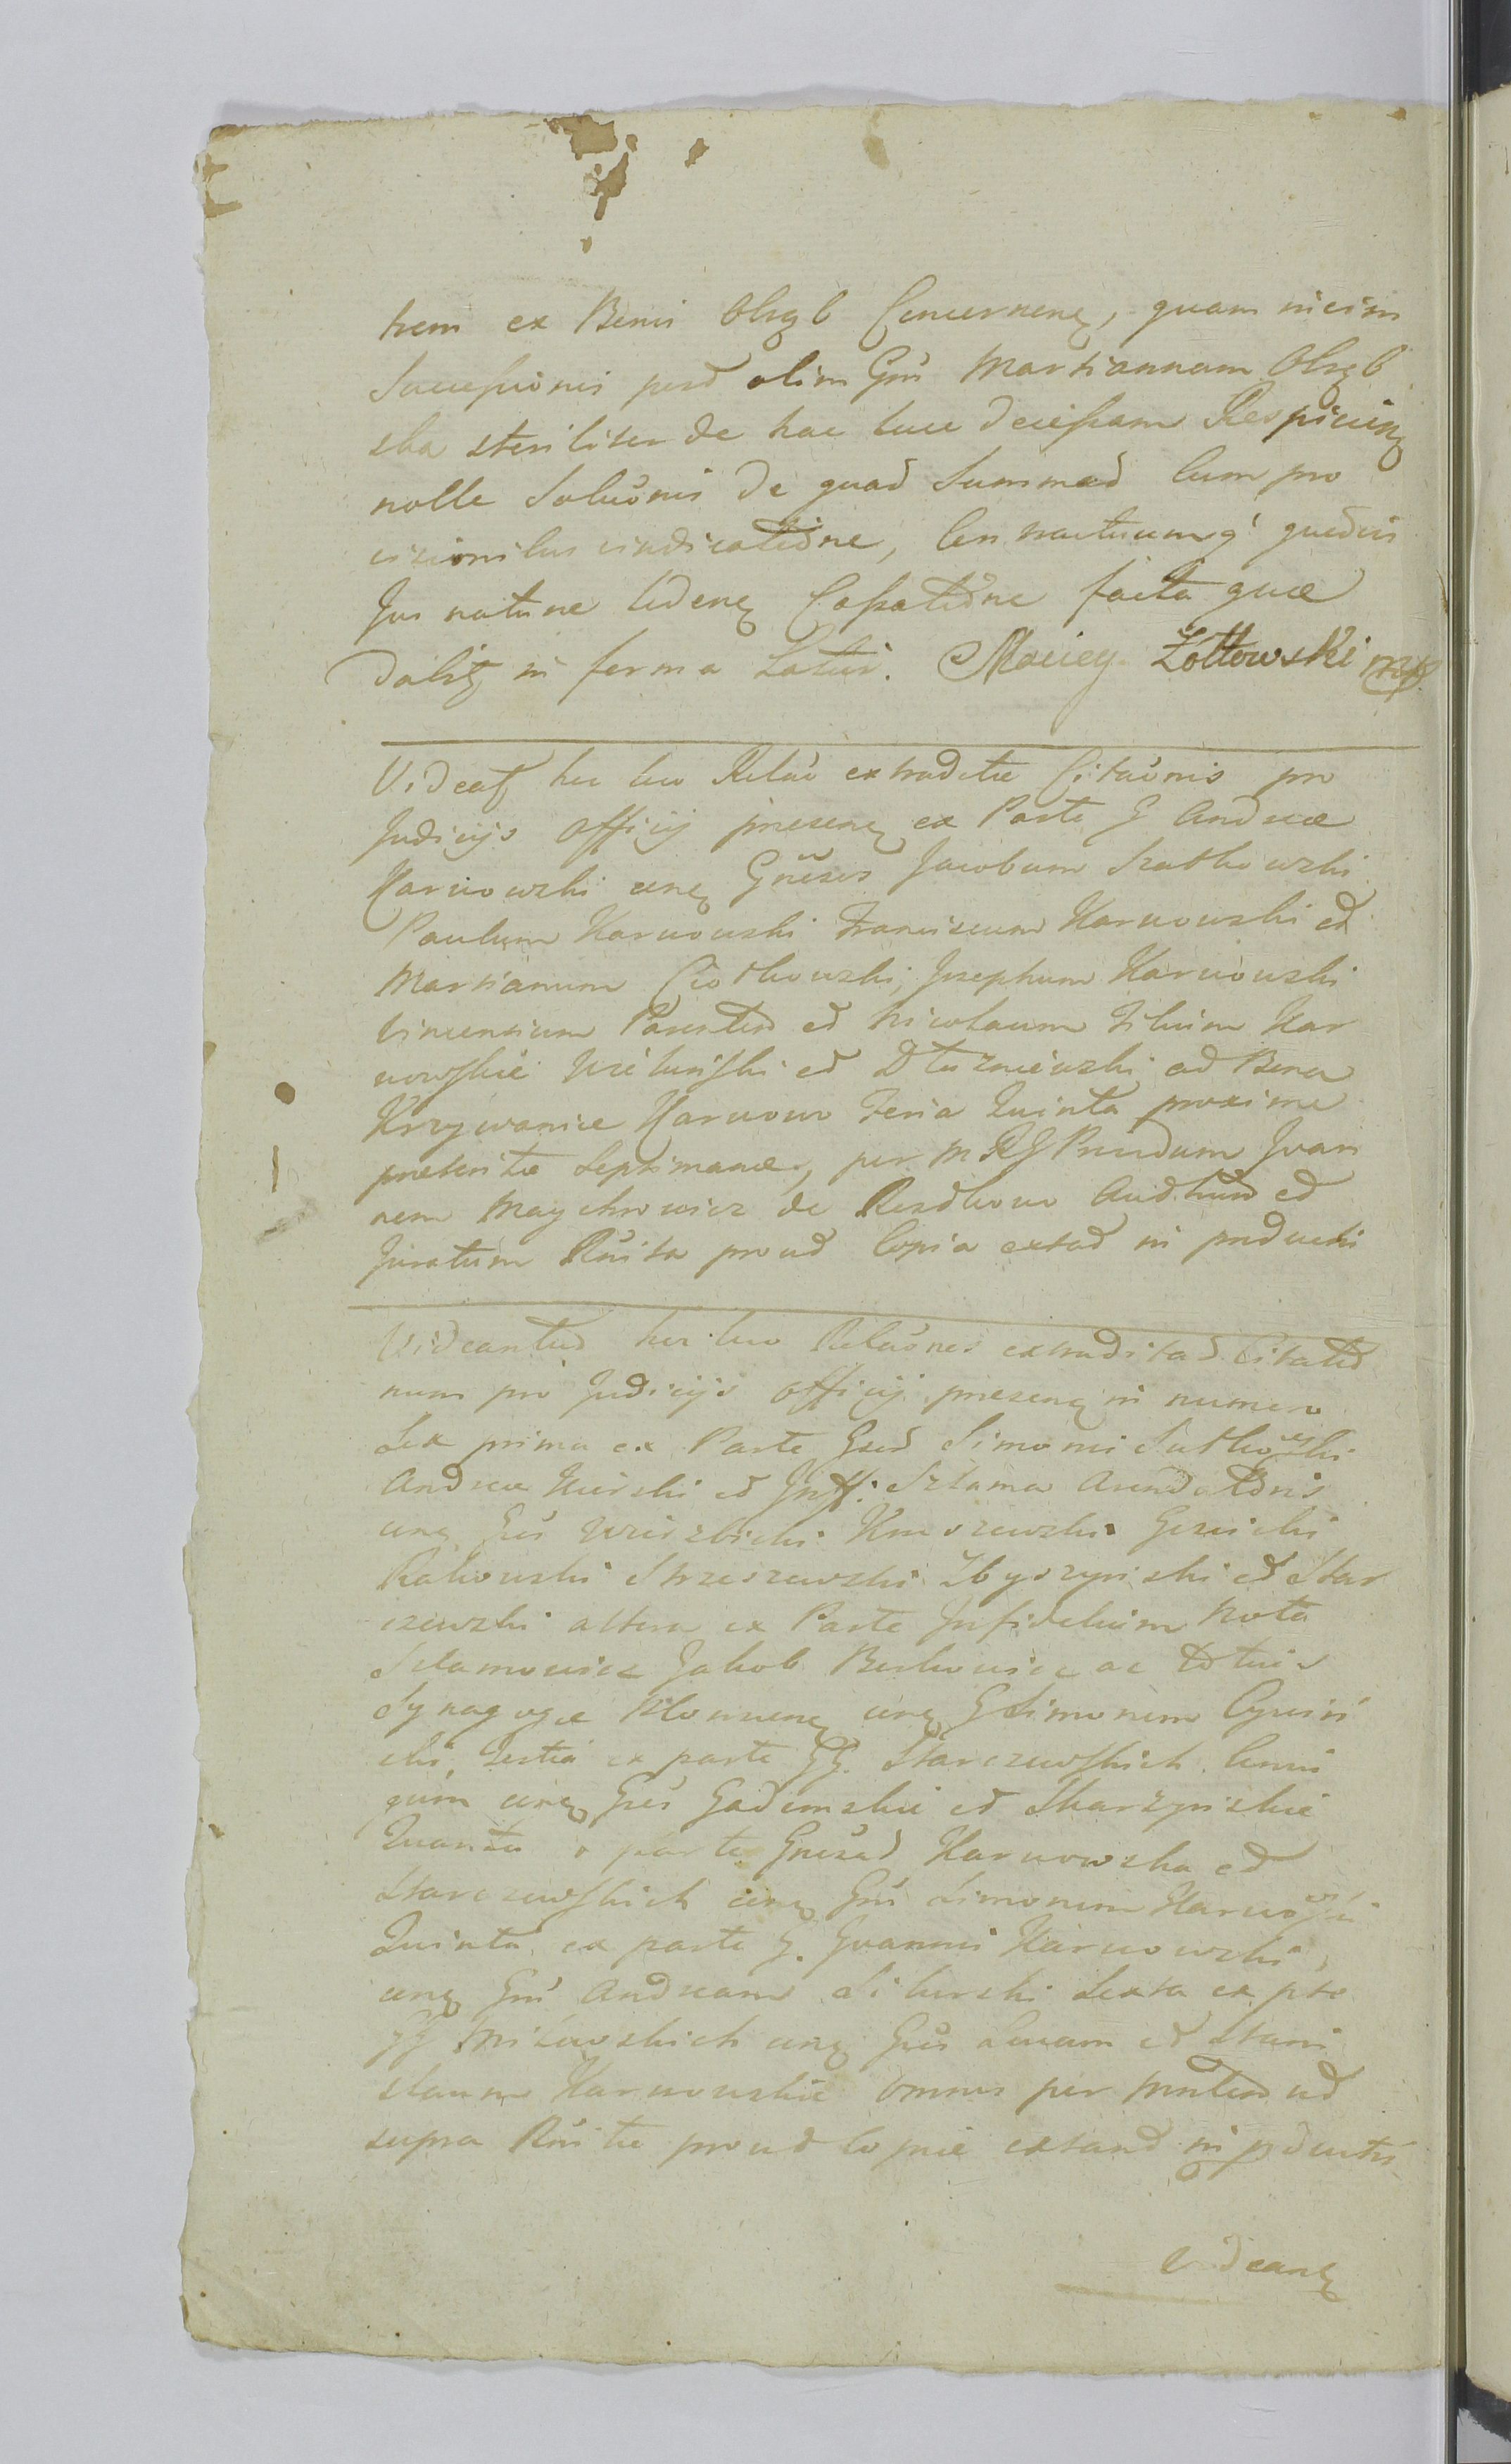 trem ex Bonis Olszb Concernenę, quam nicim
Successionis post olim Gñ Martiannam Olszb
ska steriliter de hac luce decessam Respicienę
nolle Soluõnis de quad Summad cum pro
visionibus vindicatione, Con tractuumq́ quoduis
Jus naturæ lædenę Cassatione facta quæ
dabitę in forma Latiori. Maciey Zołtowski mp
Videat hic loco Relaõ extraditæ Citaõnis pro
Judicijs Officij præsenę ex Parte G Andreæ
Karwowski cinę Gnẽsos Jacobum Szatkowski
Paulum Karwowski Franciscum Karwowski et
Martianum Ciotkowski, Josephum Karwowski
Vincentium Parentem et Nicolaum Filium Kar
wowskie Wieluński et Dłużniewski ad Bona
Krzywanice Karwowo Feria Quinta proxime
præterita Septimanæ, per M RG Prudum Joan
nem Maychrowicz de Rozdkowo Audtum et
Juratum Rńita prout Copia extat in productis
Videantur hic loco Relaõnes extraditad Citatio
num pro Judicijs Officij præsenę in numero
Sex prima ex Parte Gsor Simonis Sutkowski
Andreæ Kierski et Inff: Szlama Arendatoris
cinę Gñs Wierzbicki Kmoszewski Gizicki
Rakowski Strzeszewski Zbyszyński et Star
czewski altera ex Parte Infidelium Nota
Szlamowicz Jakob Berkowicz ac totius
Synagogæ Płonnenę cinę G Simonem Cywiń
ski, Tertia ex parte GG. Starczewskich Coniu
gum cinę Gñs Gadomskie et Skarzyńskie
Quarta e parte Gnesad Karwowska et
Starczewskich cinę Gñ Simonem Karwowski
Quinta ex parte G. Joannis Karwowski,
cinę Gñ Andream Sikorski Sexta ex pte
GG Miłowskich cinę Gñs Lucam et Stani
slaum Karwowskie omnes per Mntem ut
supra Rńitæ prout Copiæ extant in pductis
Videanę